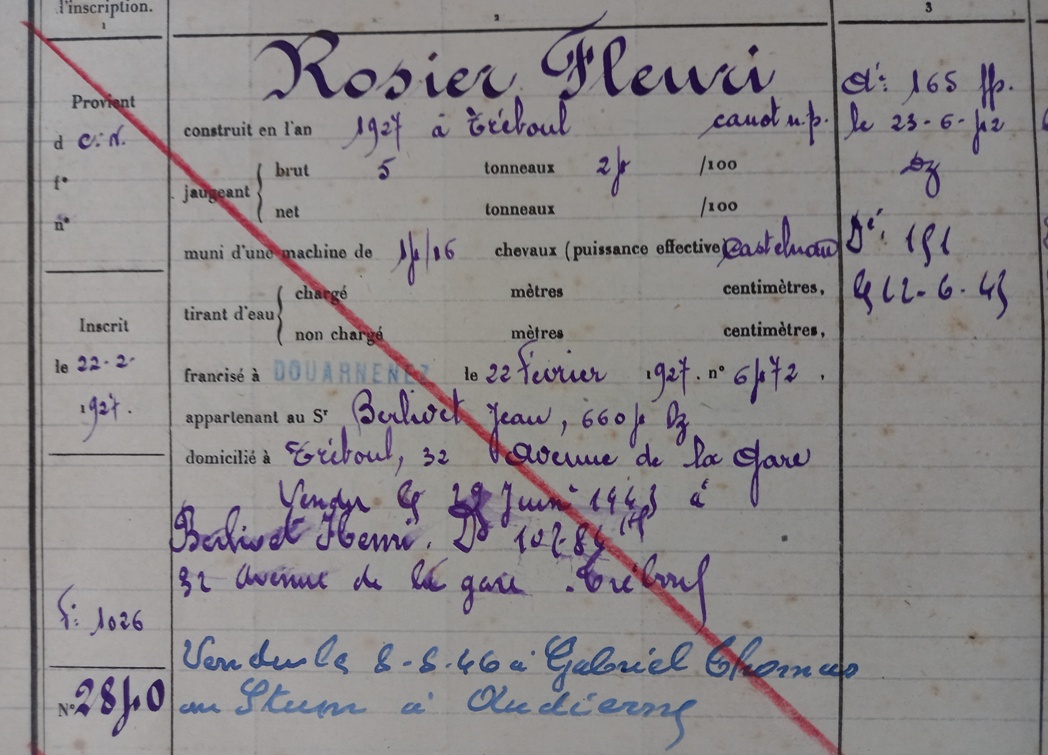 l'inscription.
1
2
3
Rosier Fleuri
Provient
d c.n.
f°
n°
construit en l'an 1927 à Tréboul canot n.p.
jaugeant brut 5 tonneaux 25 /100
net tonneaux /100
muni d'une machine de 15/16 chevaux (puissance effective) Castelnau
tirant d'eau chargé mètres centimètres,
non chargé mètres centimètres,
Inscrit
le 22-2-
1927.
francisé à DOUARNENEZ le 22 février 1927. n° 6572.
appartenant au Sr Berlivet Jean, 6605 Dz
domicilié à Tréboul, 32 Avenue de la Gare
Vendu le 29 Juin 1945 à
Berlivet Henri. Dz
32 avenue de la gare Tréboul
Vendu le 8-8-46 à Gabriel Thomas
au Stum à Audierne
F: 1026
N° 2850
165 ff.
le 23-6-52
Dz
191